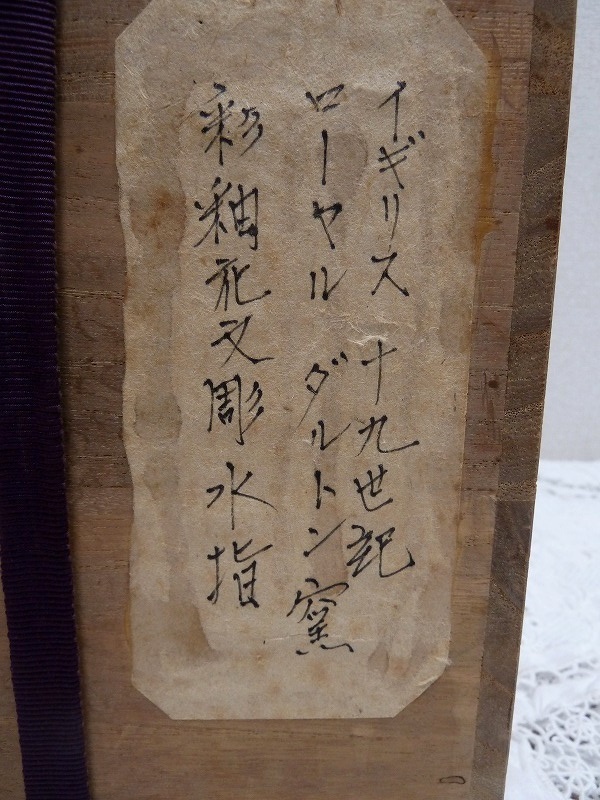 イギリス 十九世紀
ローヤル ダルトン窯
彩釉花文彫水指